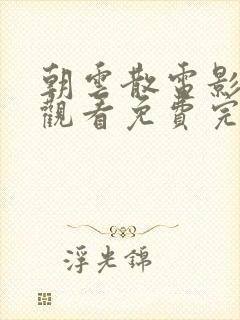 朝雲散電影
觀看免費完
浮光錦